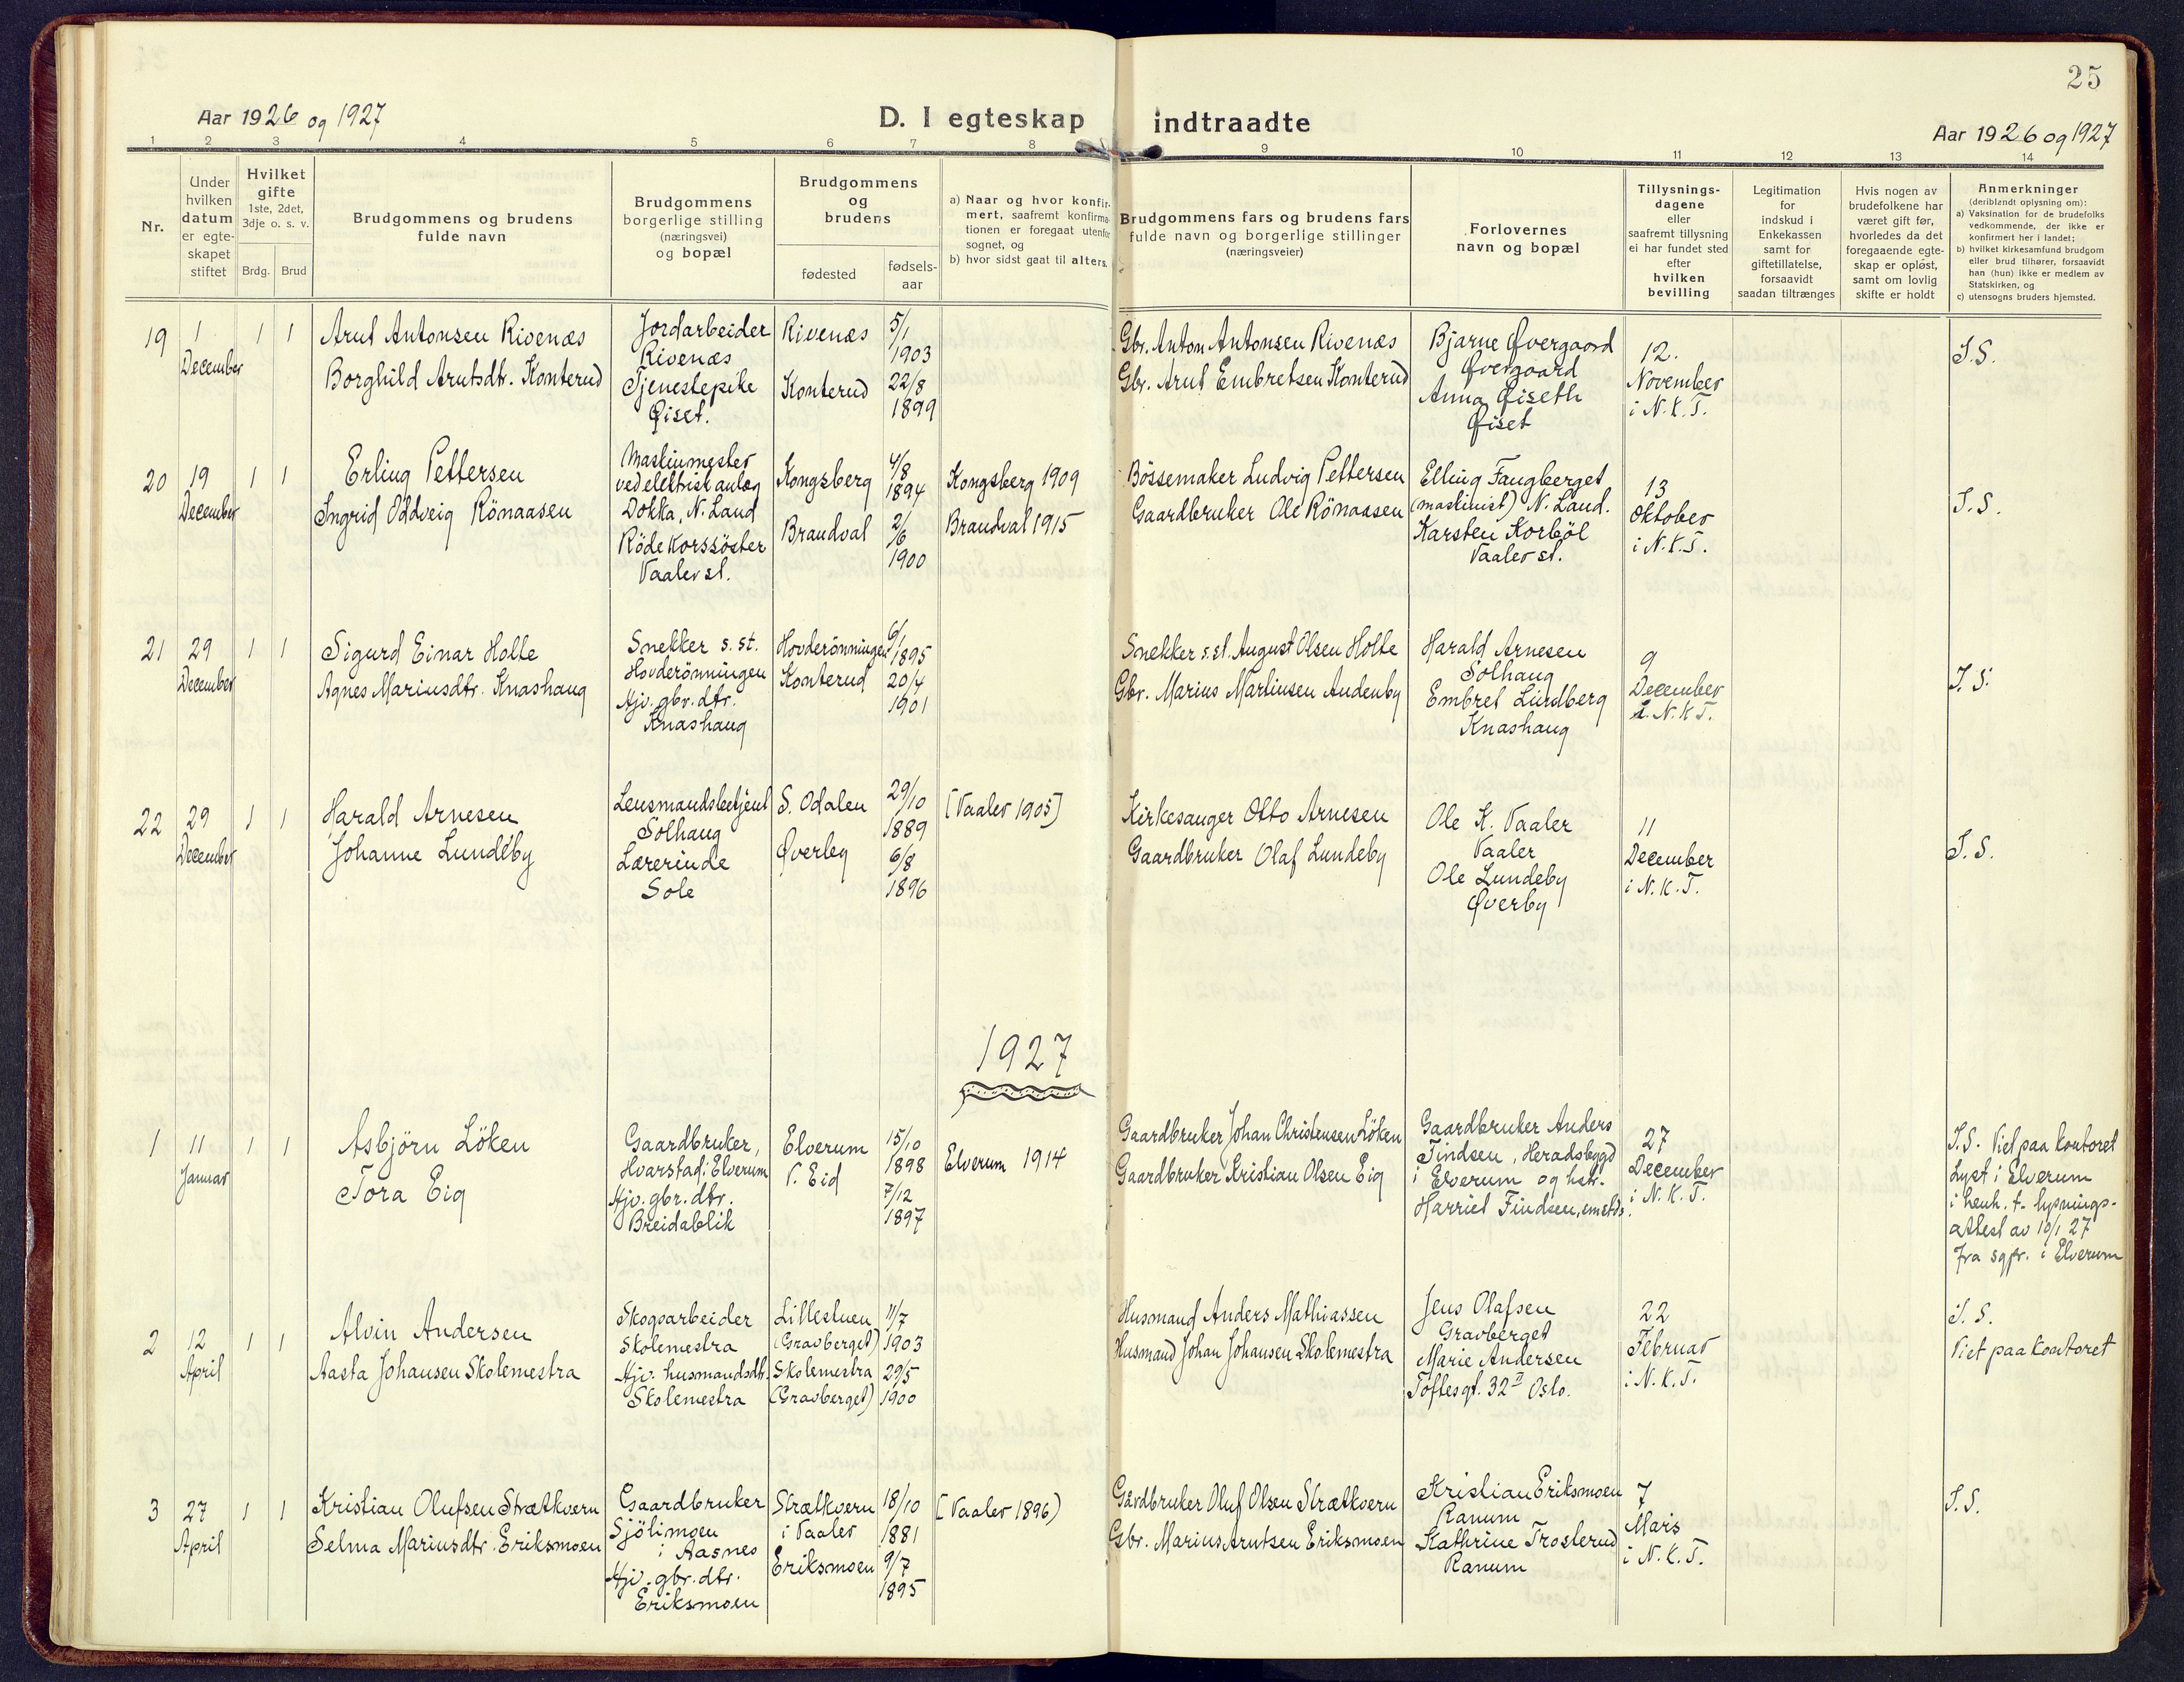 25
Aar 1926 og 1927
D. I egteskap indtraadte
Aar 1926 og 1927
1 2 3 4 5 6 7 8 9 10 11 12 13 14
Nr.
Under
hvilken
datum
er egte-
skapet
stiftet
Hvilket
gifte
1ste, 2det,
3dje o. s. v.
Brdg. Brud
Brudgommens og brudens
fulde navn
Brudgommens
borgerlige stilling
(næringsvei)
og bopæl
Brudgommens
og
brudens
fødested
fødsels-
aar
a) Naar og hvor konfir-
mert, saafremt konfirma-
tionen er foregaat utenfor
sognet, og
b) hvor sidst gaat til alters.
Brudgommens fars og brudens fars
fulde navn og borgerlige stillinger
(næringsveier)
Forlovernes
navn og bopæl
Tillysnings-
dagene
eller
saafremt tillysning
ei har fundet sted
efter
hvilken
bevilling
Legitimation
for
indskud i
Enkekassen
samt for
giftetillatelse,
forsaavidt
saadan tiltrænges
Hvis nogen av
brudefolkene har
været gift før,
hvorledes da det
foregaaende egte-
skap er opløst,
samt om lovlig
skifte er holdt
Anmerkninger
(deriblandt oplysning om):
a) Vaksination for de brudefolks
vedkommende, der ikke er
konfirmert her i landet;
b) hvilket kirkesamfund brudgom
eller brud tilhører, forsaavidt
han (hun) ikke er medlem av
Statskirken, og
c) utensogns bruders hjemsted.
19
1
December
1 1
Arut Antonsen Rivenæs
Borghild Arutsdtr. Konterud
Jordarbeider
Rivenæs
Tjenestepike
Øiset.
Rivenæs
Konterud
5/1
1903
22/8
1899
Gbr. Anton Antonsen Rivenæs
Gbr. Arut Embretsen Konterud
Bjarne Øvergaard
Øvergaard
Anna Øiseth
Øiset
12.
November
i N.K.T.
S.S.
20
19
December
1 1
Erling Pettersen
Ingrid Oddveig Rönaasen
Maskinmester
ved elektrisk anlæg
Dokka, N. Land
Röde korssöster
Vaaler st.
Kongsberg
Brandval
4/8
1894
2/6
1900
Kongsberg 1909
Brandval 1915
Bössemaker Ludvig Pettersen
Gaardbruker Ole Rönaasen
Elling Fangberget
(maskinist) N. Land.
Karsten Korböl
Vaaler st.
13
Oktober
i N.K.T.
S.S.
21
29
December
1 1
Sigurd Einar Holte
Agnes Mariusdtr. Knashaug
Snekker s. st.
Hovderönningen
Hjv. gbr. dtr.
Knashaug
Hovderönningen
Konterud
6/1
1895
20/4
1901
Snekker s. st. August Olsen Holte
Gbr. Marius Martinsen Audenby
Harald Arnesen
Solhaug
Embret Lundberg
Knashaug
9
December
i N.K.T.
S.S.
22
29
December
1 1
Harald Arnesen
Johanne Lundeby
Lensmandsbetjent
Solhaug
Lærerinde
Sole
S. Odalen
Øverby
29/10
1889
6/8
1896
[Vaaler 1905]
Kirkesanger Otto Arnesen
Gaardbruker Olaf Lundeby
Ole K. Vaaler
Vaaler
Ole Lundeby
Øverby
11
December
i N.K.T.
S.S.
1927
1
11
Januar
1 1
Asbjörn Löken
Tora Eig
Gaardbruker,
Hvarstad i Elverum
Hjv. gbr. dtr.
Breidablik
Elverum
V. Eid
15/10
1898
7/12
1897
Elverum 1914
Gaardbruker Johan Christensen Löken
Gaardbruker Kristian Olsen Eig
Gaardbruker Anders
Findsen, Heradsbygd
i Elverum og hstr.
Harriet Findsen, smstds.
27
December
i N.K.T.
S.S. Viet paa kontoret
Lyst i Elverum
i henh. t. lysnings-
attest av 10/1 27
fra sgpr. i Elverum
2
12
April
1 1
Alvin Andersen
Aasta Johansen Skolemestra
Skogsarbeider
Skolemestra
Hjv. husmandsdtr.
Skolemestra
Lillestuen
(Gravberget)
Skolemestra
(Gravberget)
11/7
1903
29/5
1900
Husmand Anders Mathiassen
Husmand Johan Johansen Skolemestra
Jens Olafsen
Gravberget
Marie Andersen
Toftesgt. 32 II Oslo.
22
Februar
i N.K.T.
S.S.
Viet paa kontoret
3
27
April
1 1
Kristian Olufsen Strætkvern
Selma Mariusdtr. Eriksmoen
Gaardbruker
Sjölimoen
i Aasnes
Hjv. gbr. dtr.
Eriksmoen
Strætkvern
i Vaaler
Eriksmoen
18/10
1881
9/7
1895
[Vaaler 1896)
Gårdbruker Oluf Olsen Strætkvern
Gbr. Marius Arntsen Eriksmoen
Kristian Eriksmoen
Ranum
Kathrine Trosterud
Ranum
7
Mars
i N.K.T.
S.S.